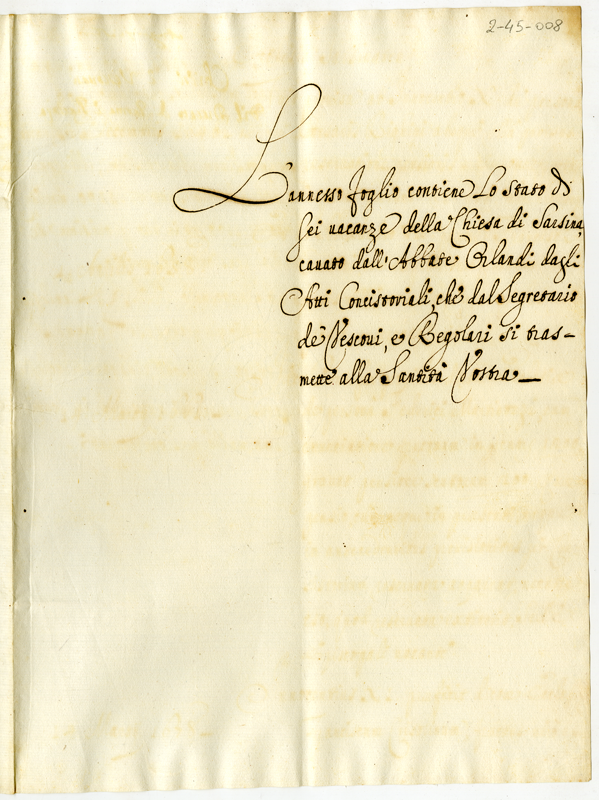 2-45-008
L'annesso foglio contiene Lo Stato di
sei vacanze della Chiesa di Sarsina,
cavato dall'Abbate Orlandi dagli
Atti Concistoriali, che dal Segretario
de Vescoui, e Regolari si tras-
mette alla Santità Vostra